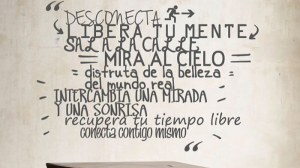 DESCONECTA
LIBERA TU MENTE
SAL A LA CALLE
MIRA AL CIELO
disfruta de la belleza
del mundo real
INTERCAMBIA UNA MIRADA
Y UNA SONRISA
recupera tu tiempo libre
conecta contigo mismo